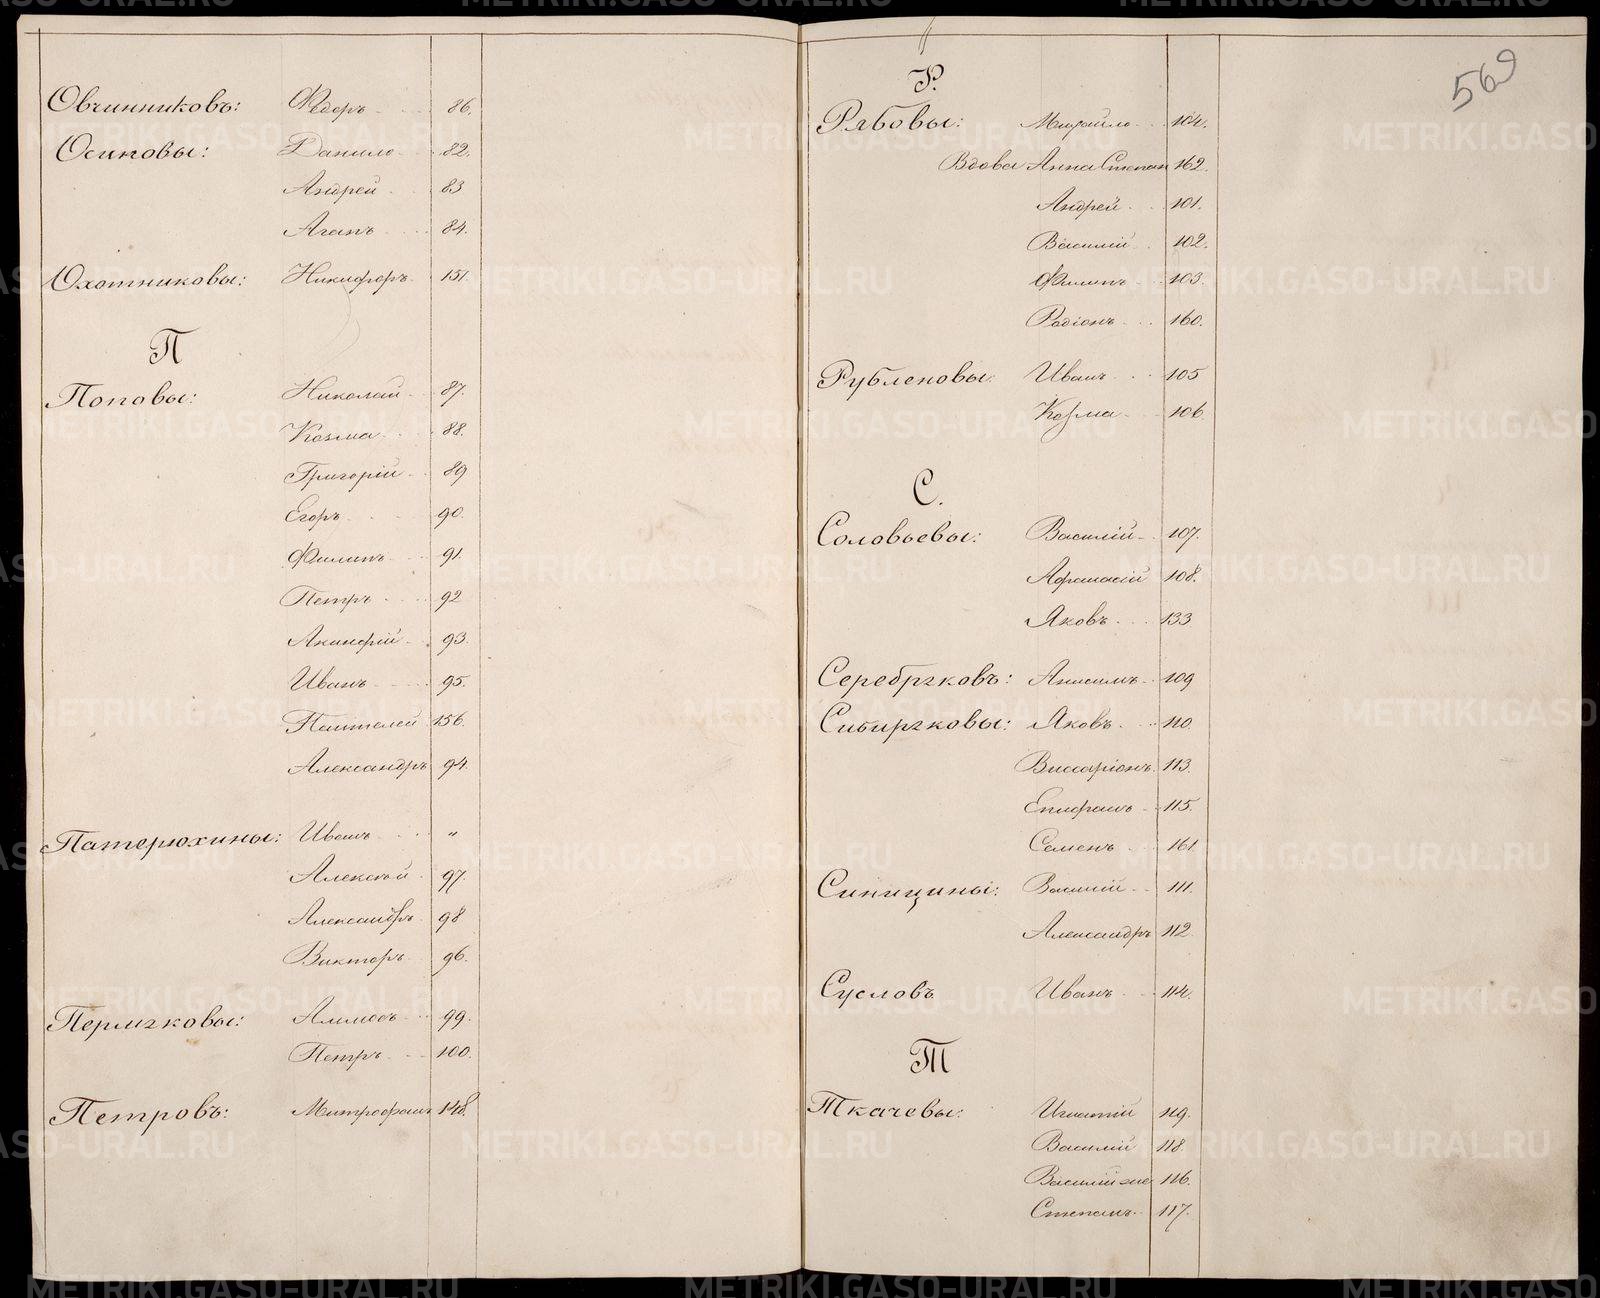 Овчинниковъ: Ѳедоръ 86.
Осиповы: Данило 82.
Андрей 83
Агапъ 84.
Охотниковы: Никифоръ 151.
П
Поповы: Николай 87.
Козма 88.
Григорій 89
Егоръ 90.
Филипъ 91.
Петръ 92
Акинфій 93.
Иванъ 95.
Пантелей 156.
Александръ 94.
Патерюхины: Иванъ "
Алексѣй 97.
Александръ 98
Викторъ 96.
Пермяковы: Аммосъ 99.
Петръ 100.
Петровъ: Митрофанъ 148.
569
Р.
Рябовы: Михайло 104.
Вдова Анна Степан 162.
Андрей 101.
Василій 102.
Филипъ 103.
Родіонъ 160.
Рублевовы: Иванъ 105
Козма 106
С.
Соловьевы: Василій 107.
Афанасій 108.
Яковъ 133
Серебряковъ: Анисимъ 109
Сибиряковы: Яковъ 110.
Виссаріонъ 113.
Епифанъ 115.
Семенъ 161
Синицины: Василій 111.
Александръ 112.
Сусловъ Иванъ 114.
Т
Ткачевы: Игнатій 119.
Василій 118.
Василій же 116.
Степанъ 117.
METRIKI.GASO-URAL.RU